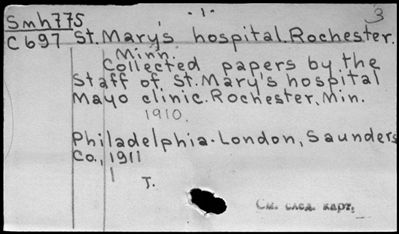 Smh775 -1- 3
C697 St. Mary's hospital. Rochester.
Minn.
Collected papers by the
Staff of St. Mary's hospital
Mayo clinic. Rochester, Min.
1910.
Philadelphia-London, Saunders
Co., 1911
T.
См. след. карт.